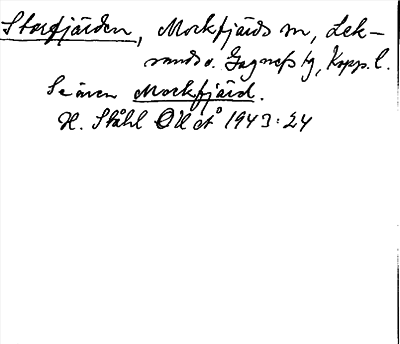 Storfjärden, Mockfjärds sn, Lek-
sands o. Gagnefs tg, Kopp. l.
Se även Mockfjärd.
H. Ståhl Ortnå 1943:24